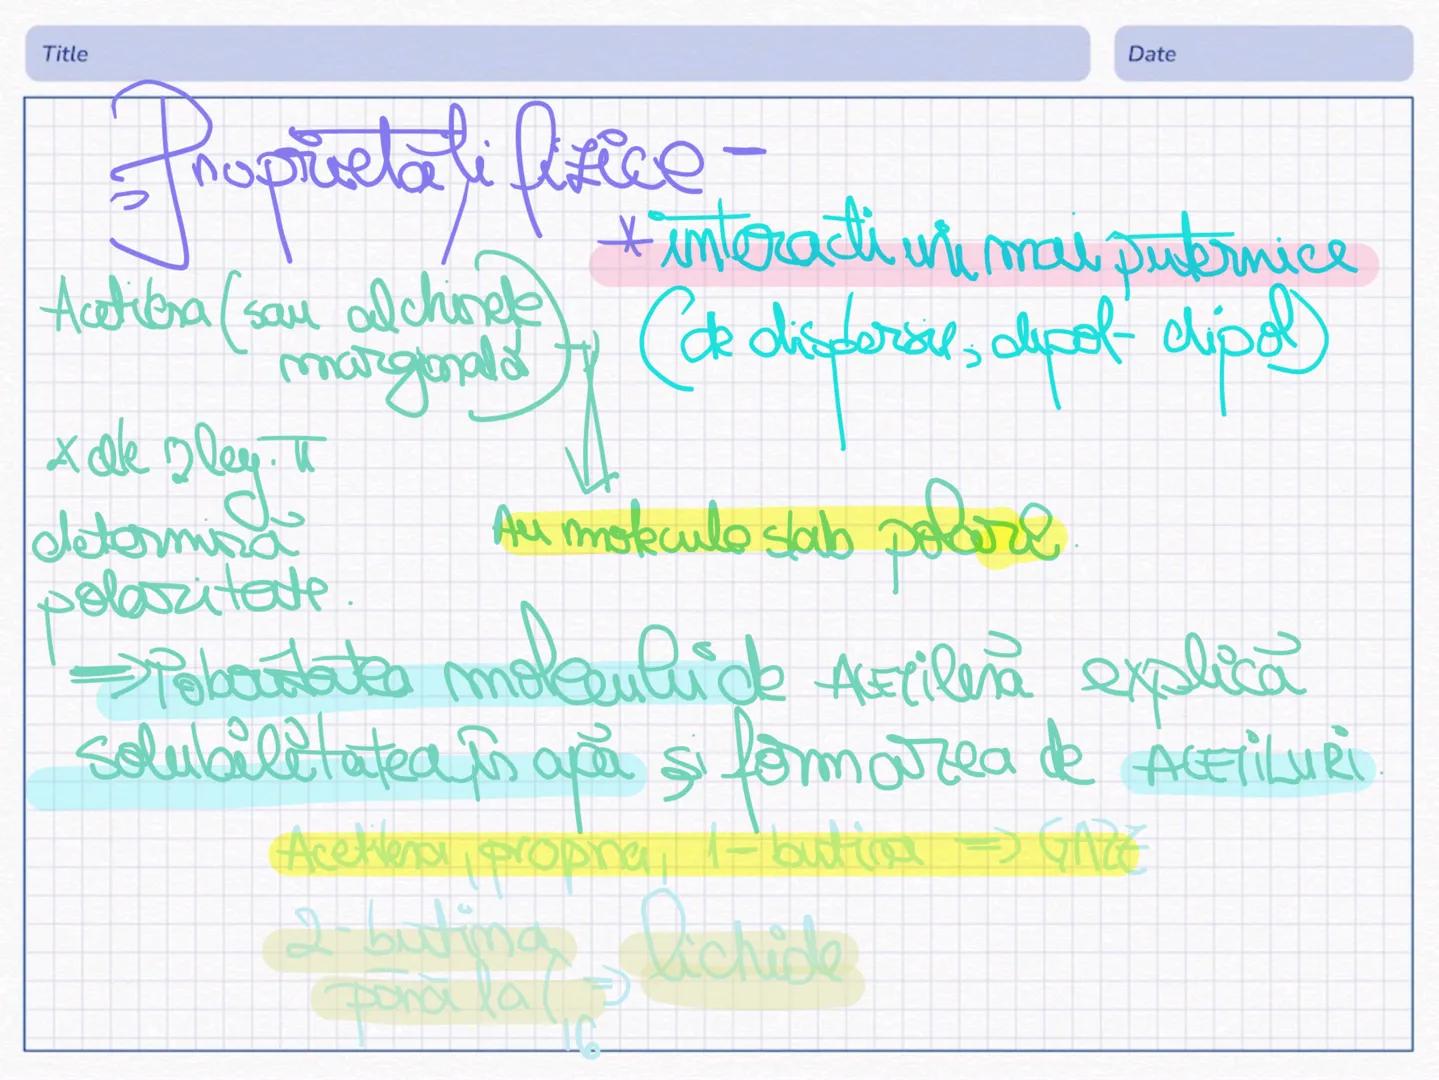 Title
Date
Proprietăți fizice -
* interacti uni mai puternice
(de dispersie, dipol- dipol)
Acetilena (sau alchinele
marginală)
* cele 2 leg. π
determină
polaritate.
Au molecule slab polare.
=> Polaritatea moleculei de ACETILENĂ explică
solubilitatea în apă și formarea de ACETILURI.
Acetilena, propina, 1-butina => GAZE
2-butina
până la C16 => lichide